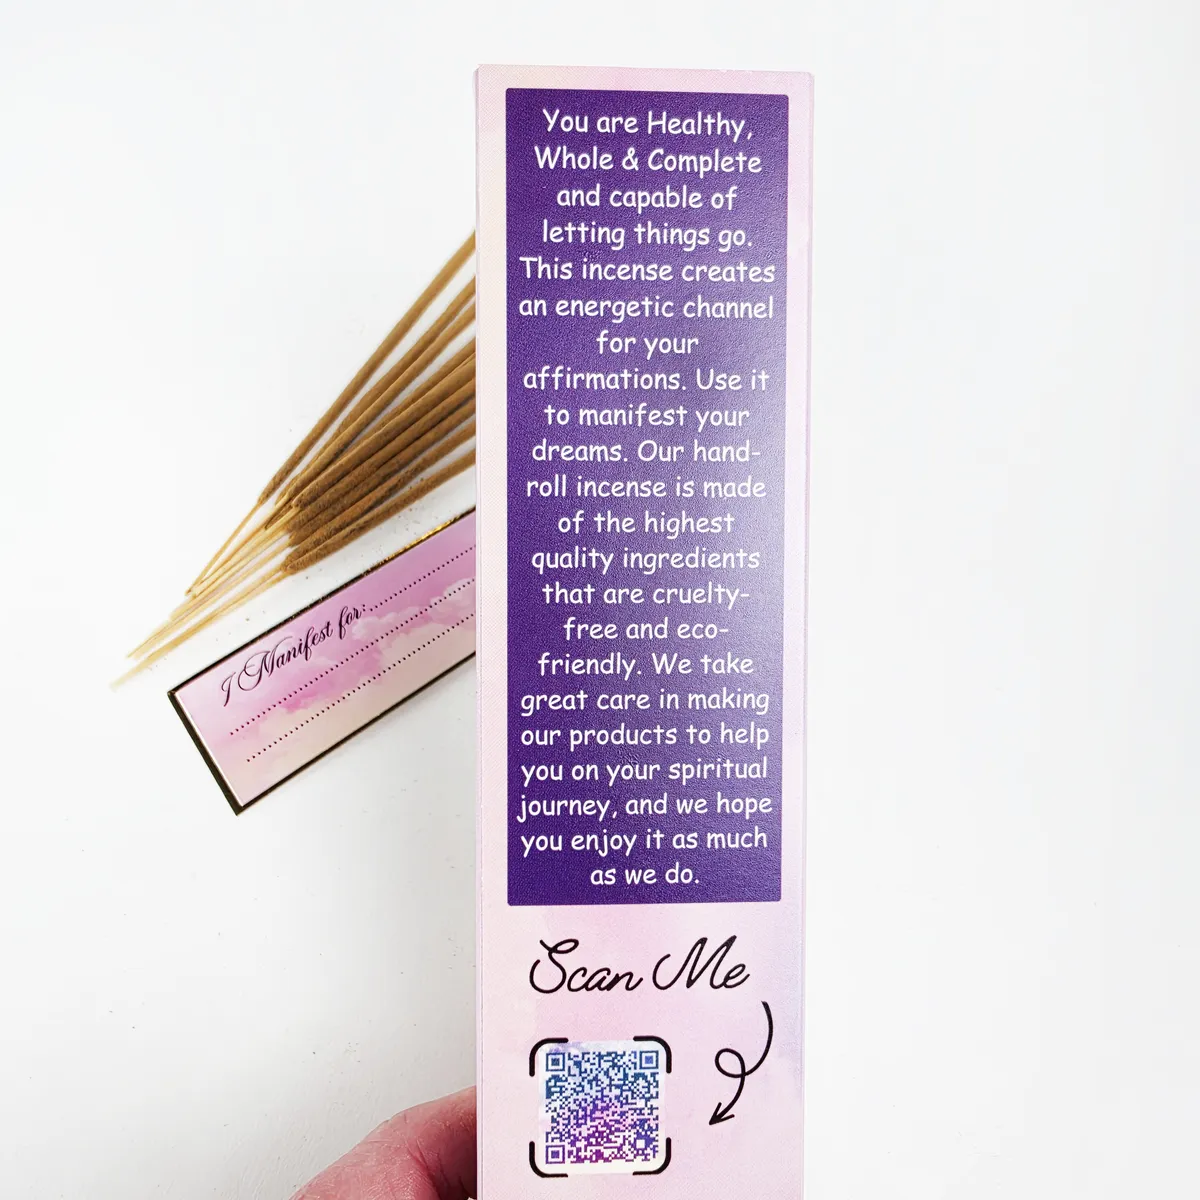 You are Healthy,
Whole & Complete
and capable of
letting things go.
This incense creates
an energetic channel
for your
affirmations. Use it
to manifest your
dreams. Our hand-
roll incense is made
of the highest
quality ingredients
that are cruelty-
free and eco-
friendly. We take
great care in making
our products to help
you on your spiritual
journey, and we hope
you enjoy it as much
as we do.
Scan Me
I Manifest for: